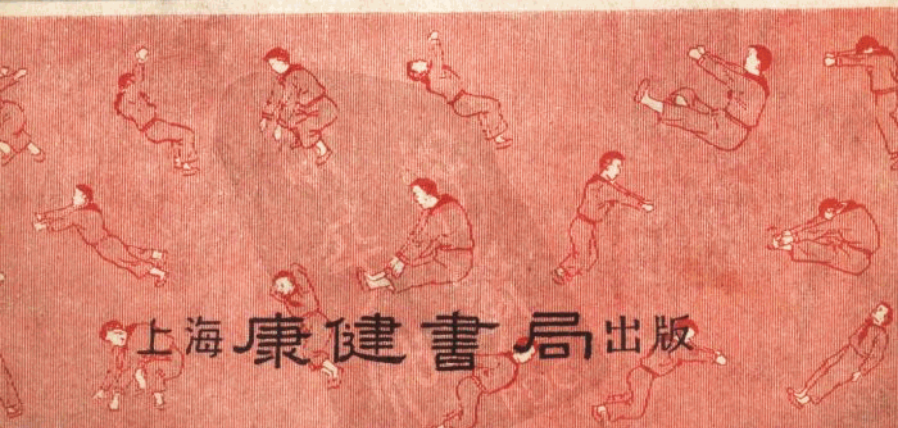 上海康健書局出版